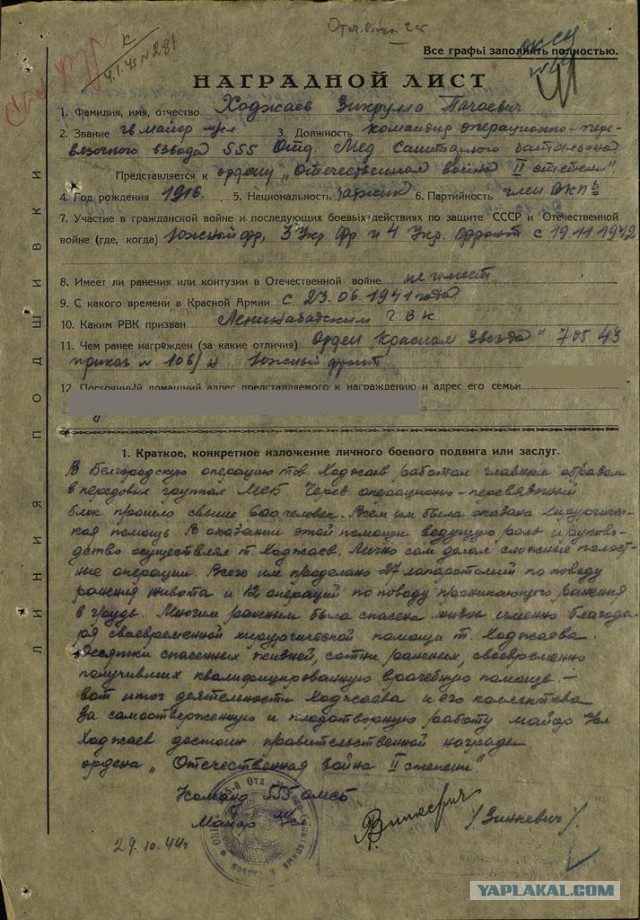 К
4.1.45 № 281
Все графы заполнять полностью.
НАГРАДНОЙ ЛИСТ
1. Фамилия, имя, отчество Ходжаев Зикрулла Пачаевич
2. Звание гв. майор м/сл 3. Должность командир операционно-пере-
вязочного взвода 555 Отд. Мед Санитарного батальона
Представляется к ордену „Отечественная война II степени"
4. Год рождения 1916. 5. Национальность таджик 6. Партийность член ВКПб
7. Участие в гражданской войне и последующих боевых действиях по защите СССР и Отечественной
войне (где, когда) Южный фр, 3 Укр. Фр и 4 Укр. фронт с 19.11.1942
8. Имеет ли ранения или контузии в Отечественной войне не имеет
9. С какого времени в Красной Армии с 23.06.1941 года
10. Каким РВК призван Ленинабадским ГВК
11. Чем ранее награжден (за какие отличия) Орден Красная Звезда"
приказ № 106/н Южный фронт
12. Постоянный домашний адрес представляемого к награждению и адрес его семьи
ЛИНИЯ ПОДШИВКИ
1. Краткое, конкретное изложение личного боевого подвига или заслуг.
В Белгородскую операцию тов. Ходжаев работал главным образом
в передовых группах МСБ. Через операционно-перевязочный
блок прошло свыше 600 человек. Всем им была оказана хирургичес-
кая помощь. В оказании этой помощи ведущую роль и руково-
дство осуществлял т. Ходжаев. Лично сам делал сложные полост-
ные операции. Всего им проделано 27 лапаротомий по поводу
ранения живота и 12 операций по поводу проникающего ранения
в грудь. Многим раненым была спасена жизнь именно благода-
ря своевременной хирургической помощи т. Ходжаева.
Десятки спасенных жизней, сотни раненых, своевременно
получивших квалифицированную врачебную помощь –
вот итог деятельности Ходжаева и его коллектива
За самоотверженную и плодотворную работу майор м/сл
Ходжаев достоин правительственной награды
ордена „Отечественная война II степени".
Команд 555 омсб
Майор м/сл /Зинкевич/.
29.10.44г
YAPLAKAL.COM